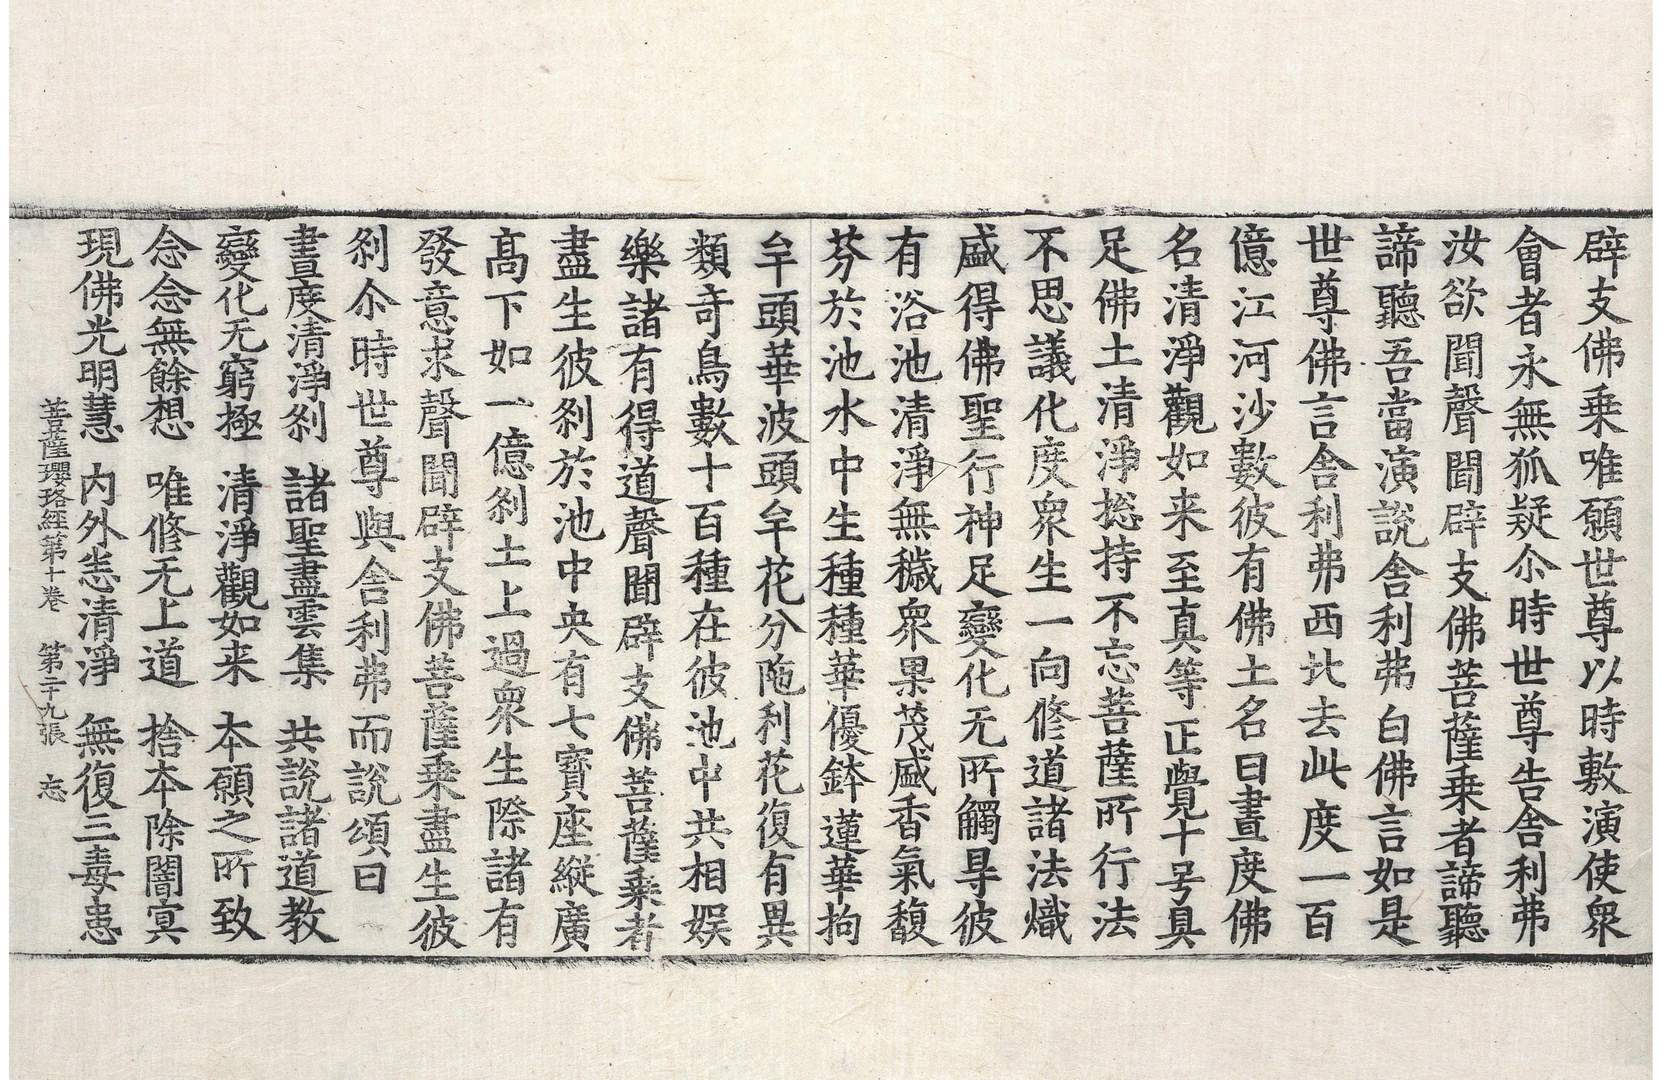 辟支佛乗唯願世尊以時敷演使衆
會者永無狐疑尒時世尊告舍利弗
汝欲聞聲聞辟支佛菩薩乗者諦聽
諦聽吾當演說舍利弗白佛言如是
世尊佛言舍利弗西北去此度一百
億江河沙數彼有佛土名曰晝度佛
名清淨觀如来至真等正覺十号具
足佛土清淨揔持不忘菩薩所行法
不思議化度衆生一向修道諸法熾
盛得佛聖行神足變化无所觸㝵彼
有浴池清淨無穢衆果茂盛香氣馥
芬於池水中生種種華優鉢蓮華拘
牟頭華波頭牟花分陁利花復有異
類奇鳥數十百種在彼池中共相娛
樂諸有得道聲聞辟支佛菩薩乗者
盡生彼刹於池中央有七寶座縱廣
高下如一億刹土上過衆生際諸有
發意求聲聞辟支佛菩薩乗盡生彼
刹尒時世尊與舍利弗而說頌曰
晝度清淨刹 諸聖盡雲集 共說諸道教
變化无窮極 清淨觀如来 本願之所致
念念無餘想 唯修无上道 捨本除闇冥
現佛光明慧 内外悉清淨 無復三毒患
菩薩瓔珞經第十卷 第二十九張 忘